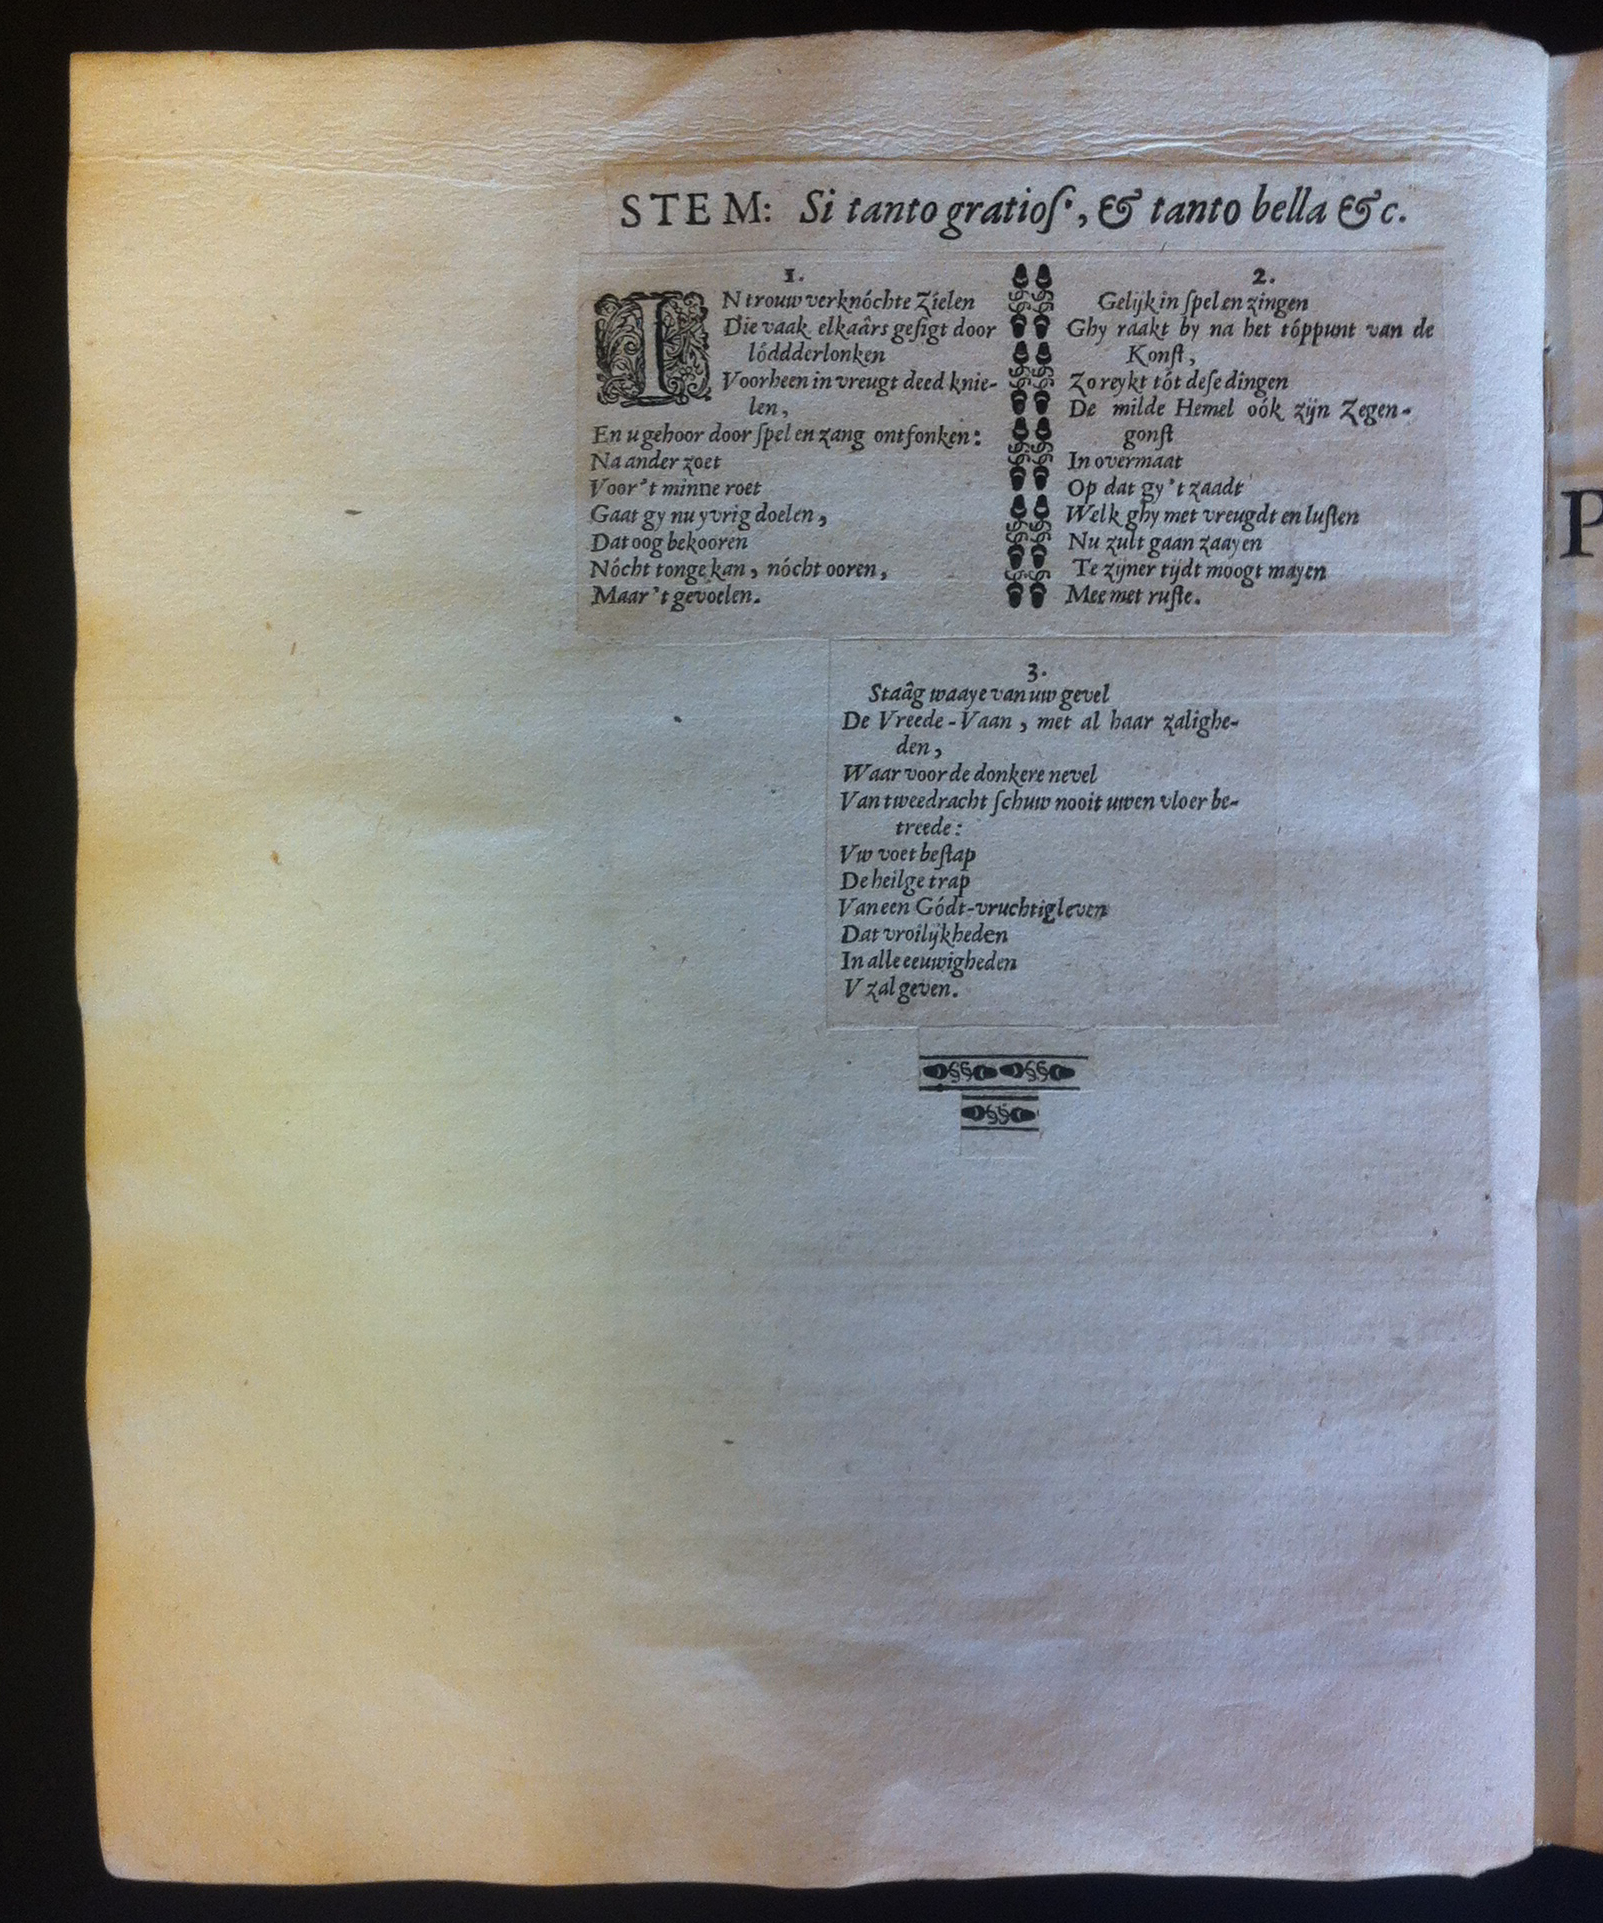 STEM: Si tanto gratioſ', & tanto bella &c.
1.
IN trouw verknóchte Zielen
Die vaak elkaârs gesigt door
lóddderlonken
Voorheen in vreugt deed knie-
len,
En u gehoor door ſpel en zang ontfonken:
Na ander zoet
Voor't minne roet
Gaat gy nu yvrig doelen,
Dat oog bekooren
Nócht tonge kan, nócht ooren,
Maar 't gevoelen.
2.
Gelijk in ſpel en zingen
Ghy raakt by na het tóppunt van de
Konſt,
Zo reykt tót deſe dingen
De milde Hemel oók zijn Zegen-
gonſt
In overmaat
Op dat gy 't zaadt
Welk ghy met vreugdt en luſten
Nu zult gaan zaayen
Te zijner tijdt moogt mayen
Mee met ruſte.
3.
Staâg waaye van uw gevel
De Vreede-Vaan, met al haar zalighe-
den,
Waar voor de donkere nevel
Van tweedracht ſchuw nooit uwen vloer be-
treede:
Vw voet beſtap
De heilge trap
Van een Gódt-vruchtig leven
Dat vroilijkheden
In alle eeuwigheden
V zal geven.
P